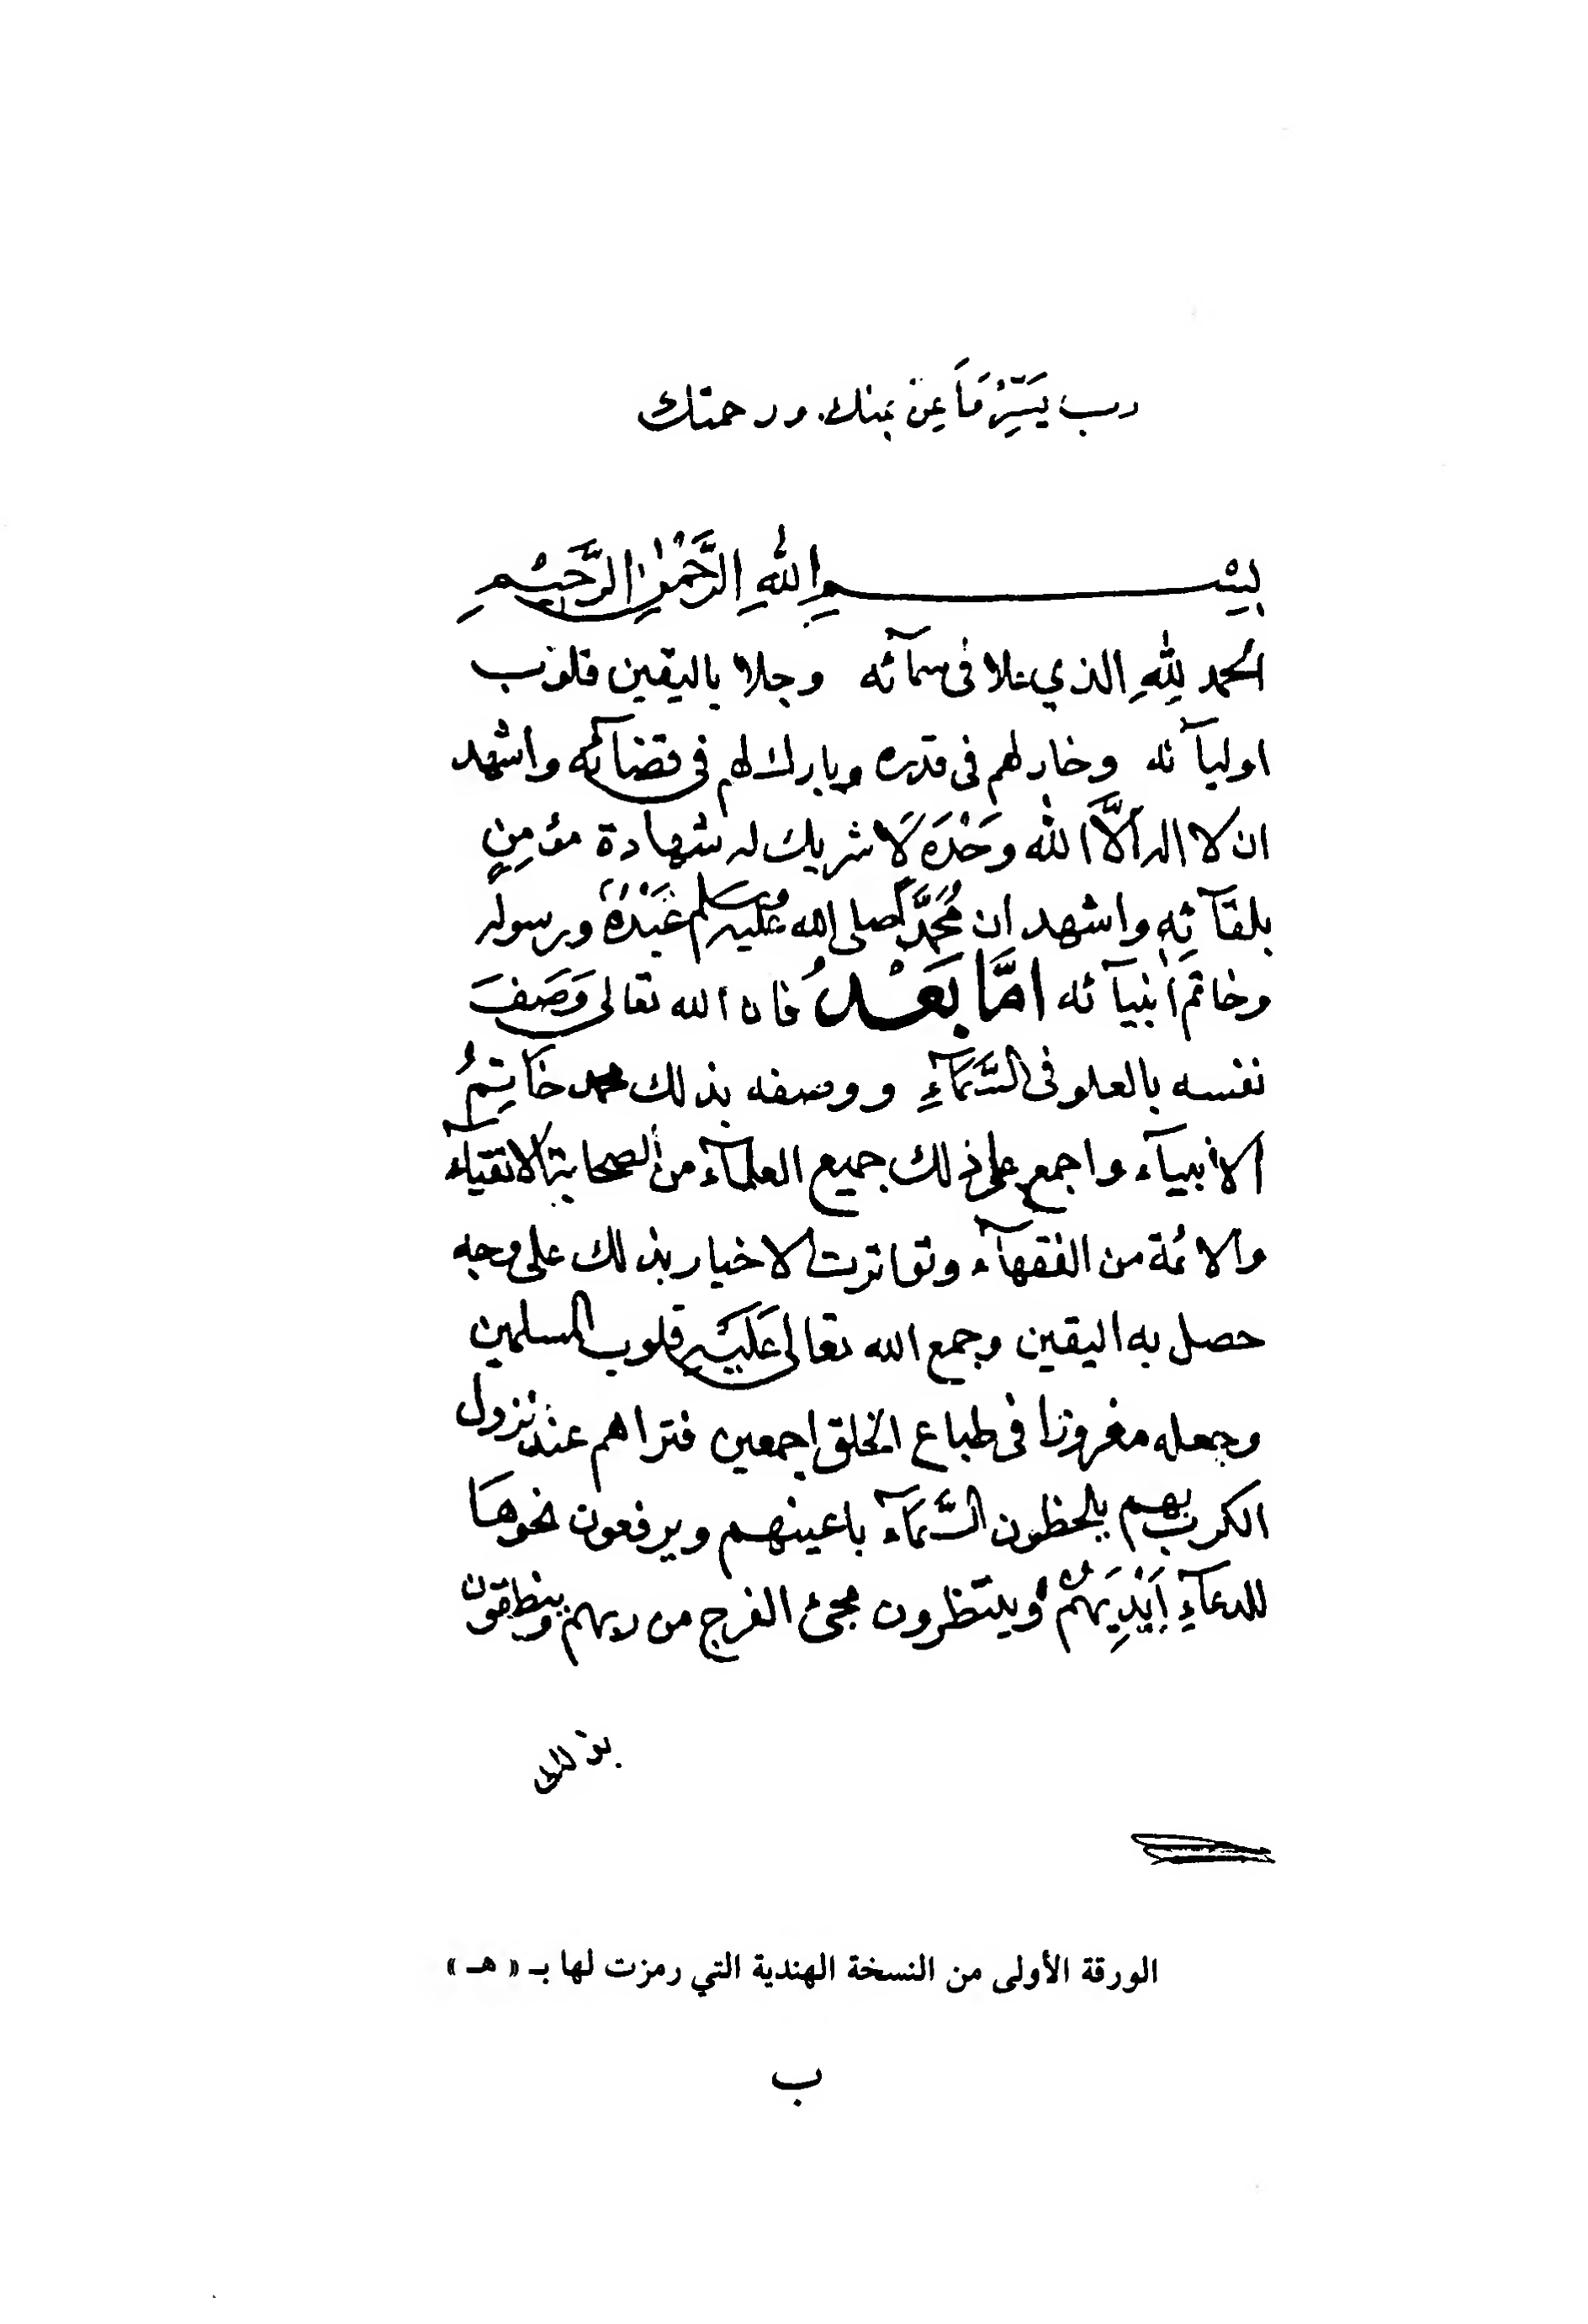 رب يَسِّرْ مَا عن بمنك ورحمتك
بِسْمِ اللهِ الرَّحْمٰنِ الرَّحِيْمِ
الحمد لِلّٰهِ الذي علا فى سمآئه وجلا باليقين قلوب
اوليآئه وخار لهم فى قدره وبارك لهم فى قضائه واشهد
ان لا اله اِلَّا الله وَحْدَه لَا شريك له شهادة مؤمِنٍ
بلقآئِهٖ واشهد ان مُحَمَّدًا صلى الله عليه وسلم عَبْدُهٗ ورسوله
وخاتم انبيآئه امَّا بَعْدُ فان الله تعالى وَصَفَ
نفسه بالعلو فى السَّمَآءِ ووصفه بذلك محمد خَاتِمُ
الانبيآء واجمع على ذلك جميع العلمآء من الصحابة الاتقيآء
والائمة من الفقهآء وتواترت الاخبار بذلك على وجه
حصل به اليقين وجمع الله تعالى عَلَيْهِ قلوب المسلمين
وجعله مغروزا فى طباع الخلق اجمعين فتراهم عند نزول
الكرب بهم يلحظون السَّمَآء باعينهم ويرفعون نحوها
للدعآءِ اَيْدِيَهُمْ وينتظرون مجئ الفرج من ربهم وينطقون
بذلك
الورقة الأولى من النسخة الهندية التي رمزت لها بـ « هـ »
ب